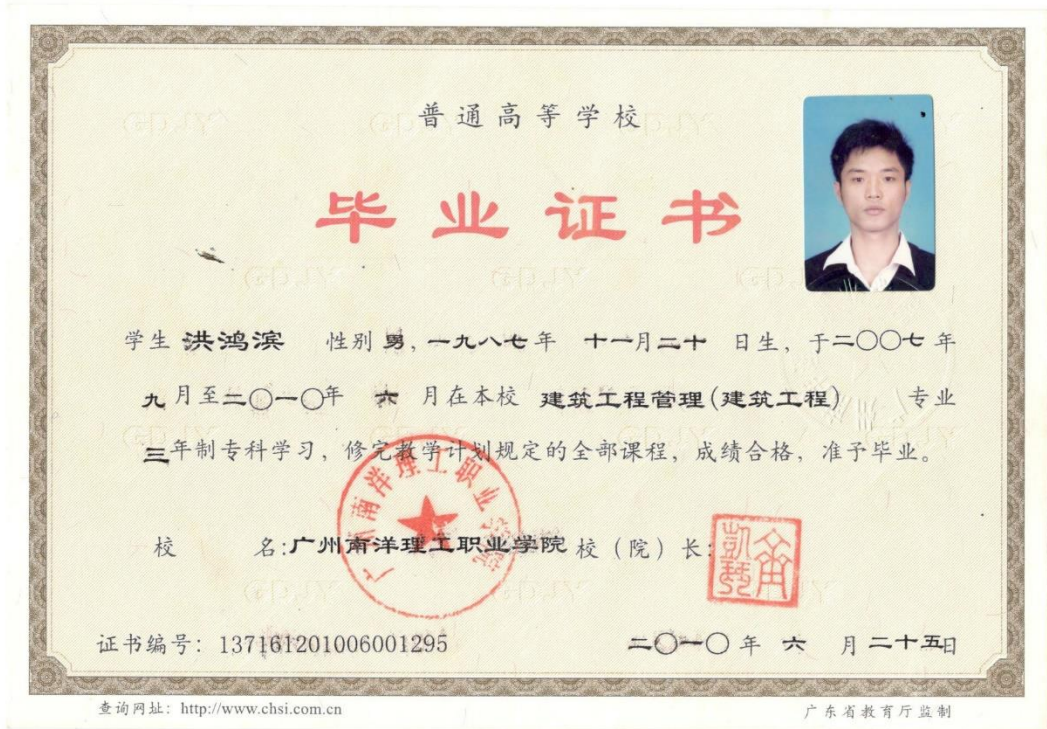 普通高等学校
毕业证书
学生 洪鸿滨 性别 男，一九八七年 十一月二十 日生，于二〇〇七年
九月至二〇一〇年 六 月在本校 建筑工程管理(建筑工程) 专业
三年制专科学习，修完教学计划规定的全部课程，成绩合格，准予毕业。
广州南洋理工职业学院
校 名:广州南洋理工职业学院 校（院）长:
证书编号：137161201006001295 二〇一〇年 六 月二十五日
查询网址：http://www.chsi.com.cn 广东省教育厅监制
GDJY